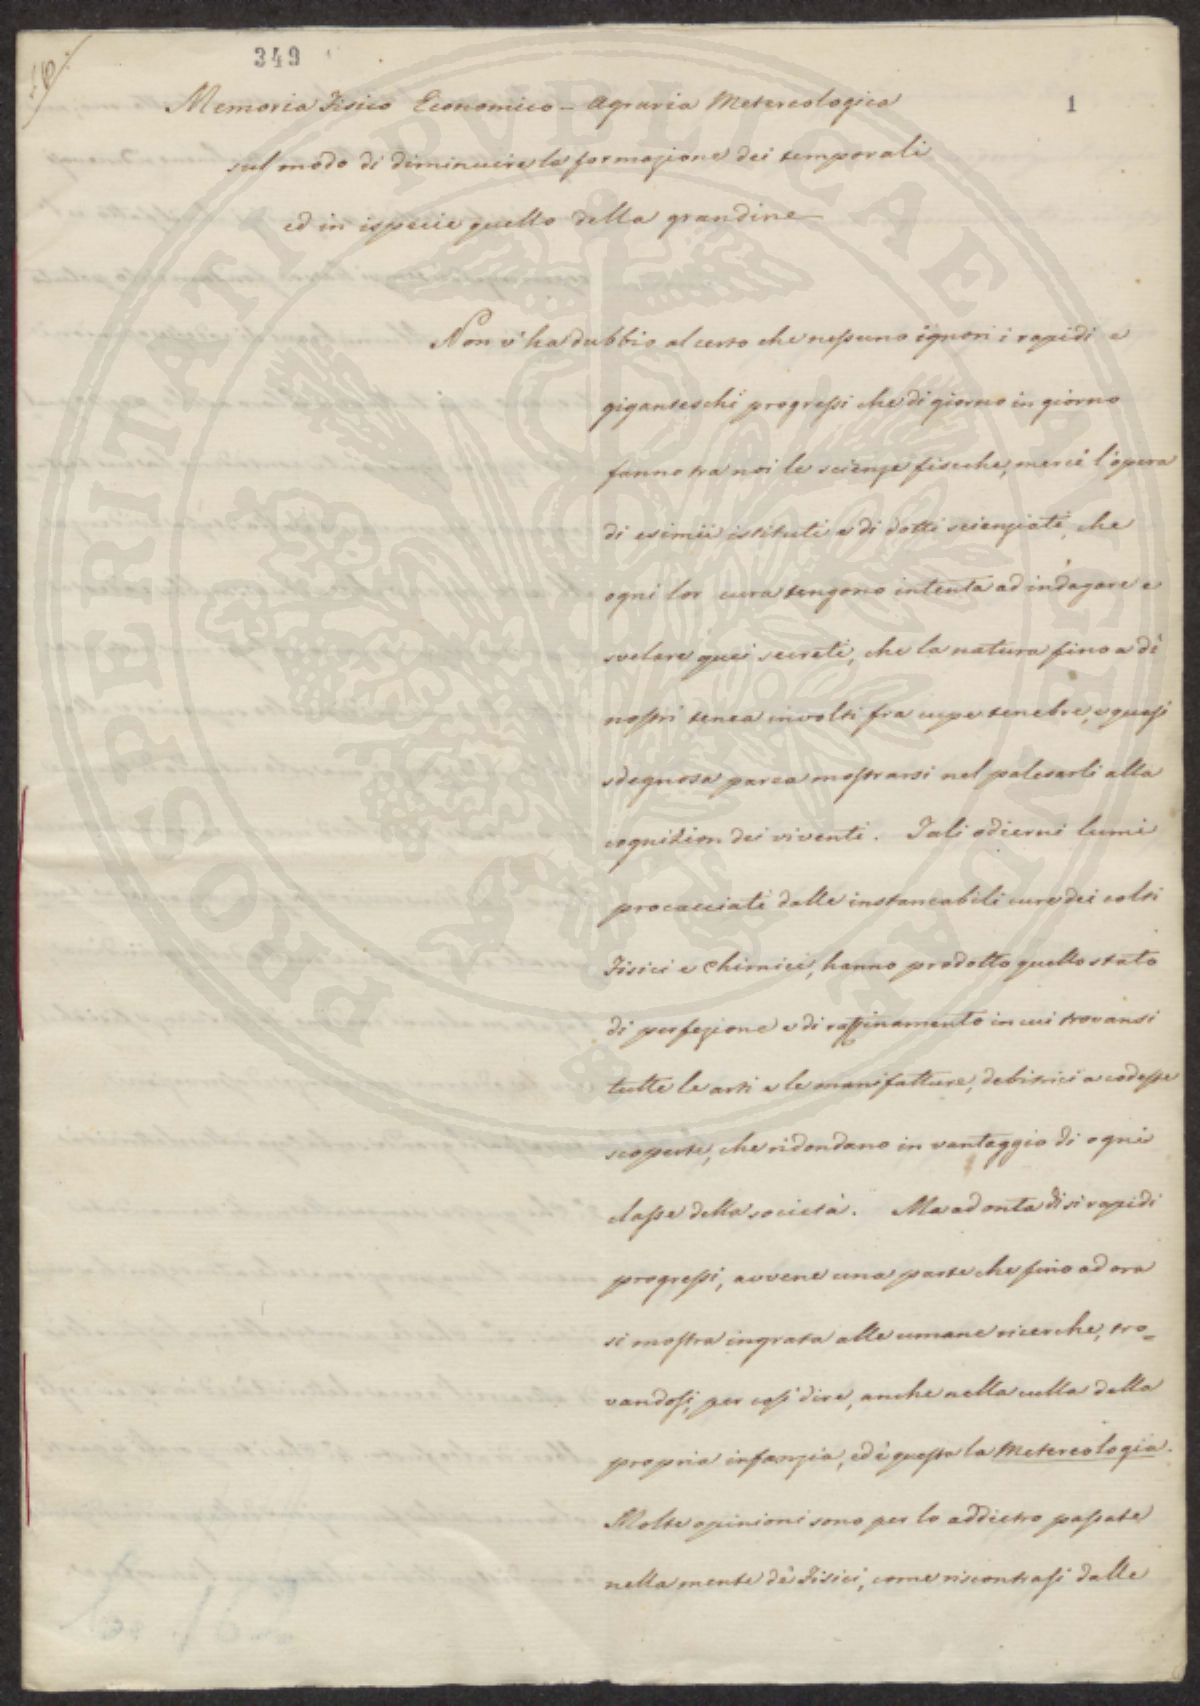 349
1
Memoria Fisico Economico - Agraria Metereologica
sul modo di diminuire la formazione dei temporali
ed in ispecie quello della grandine
Non v'ha dubbio al certo che nessuno ignori i rapidi e
giganteschi progressi che di giorno in giorno
fanno tra noi le scienze fisiche, mercè l'opera
di esimii istituti e di dotti scienziati, che
ogni lor cura tengono intenta ad indagare e
svelare quei secreti, che la natura fino a dì
nostri tenea involti fra cupe tenebre, e quasi
sdegnosa parea mostrarsi nel palesarli alla
cognizion dei viventi. Tali odierni lumi
procacciati dalle instancabili cure dei colti
Fisici e Chimici, hanno prodotto quello stato
di perfezione e di raffinamento in cui trovansi
tutte le arti e le manifatture, debitrici a codeste
scoperte, che ridondano in vantaggio di ogni
classe della società. Ma ad onta di si rapidi
progressi, avvene una parte che fino ad ora
si mostra ingrata alle umane ricerche, tro=
vandosi, per così dire, anche nella culla della
propria infanzia, ed è questa la Metereologia.
Molte opinioni sono per lo addietro passate
nella mente de' Fisici, come riscontrasi dalle
PROSPERITATI PVBLICAE AVGENDAE